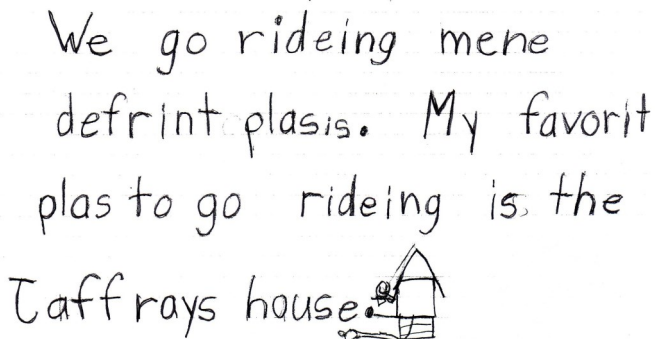 We go rideing mene
defrint plasis. My favorit
plas to go rideing is the
Taffrays house.